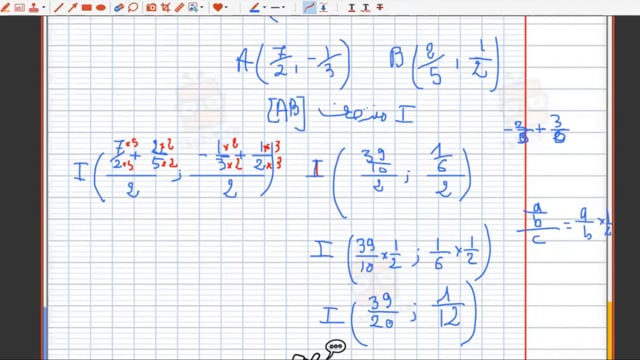 A(7/2, -1/3) B(2/5, 1/2)
I منتصف [AB]
I((7×5/2×5 + 2×2/5×2)/2 ; (-1×2/3×2 + 1×3/2×3)/2)
I((39/10)/2 ; (1/6)/2)
-2/6 + 3/6
(a/b)/c = a/b × 1/c
I(39/10 × 1/2 ; 1/6 × 1/2)
I(39/20 ; 1/12)